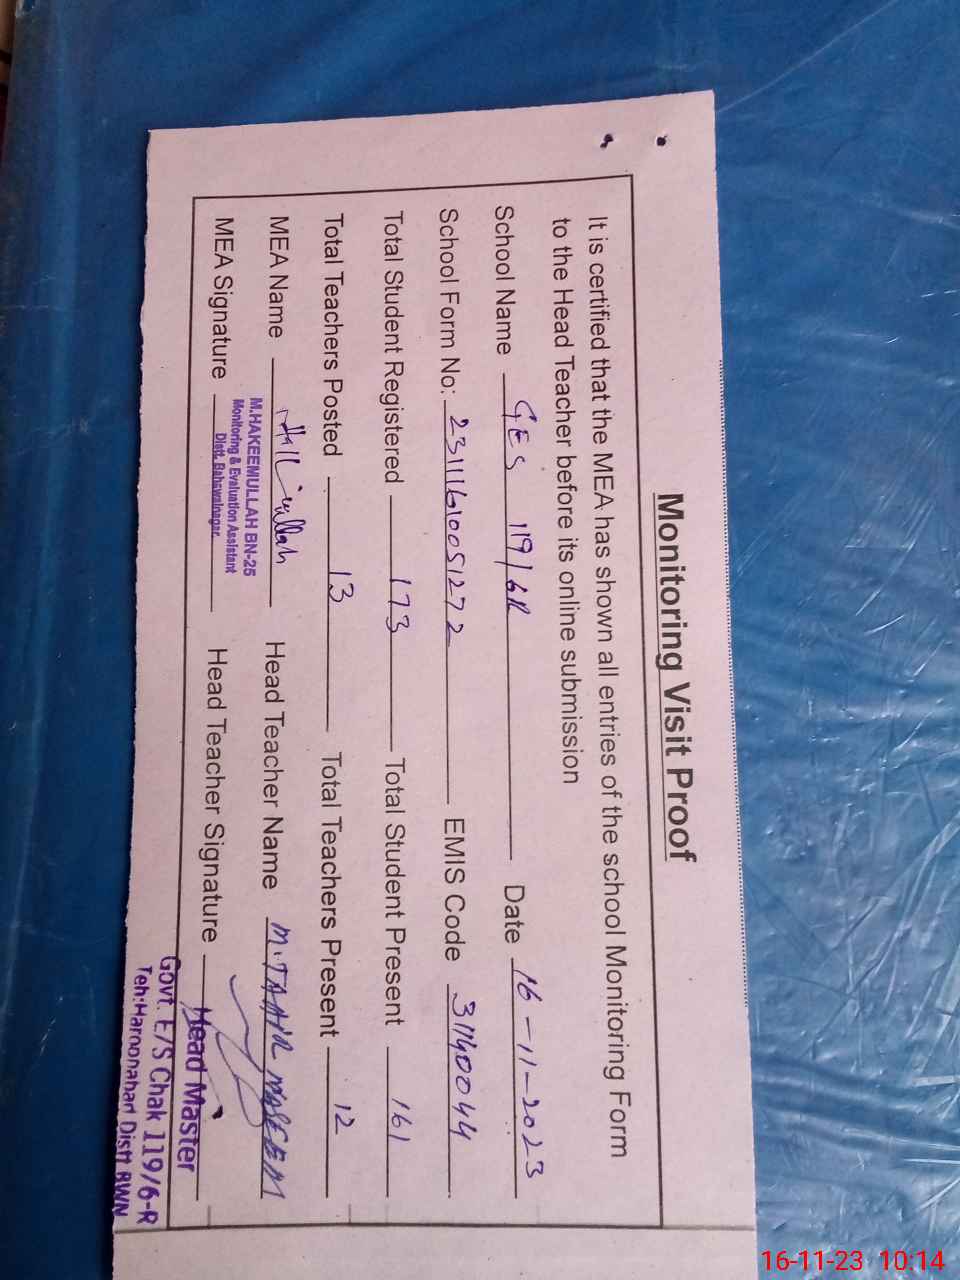 Monitoring Visit Proof
It is certified that the MEA has shown all entries of the school Monitoring Form
to the Head Teacher before its online submission
School Name GES 119/6R Date 16-11-2023
School Form No: 23111610051272 EMIS Code 31140044
Total Student Registered 173 Total Student Present 161
Total Teachers Posted 13 Total Teachers Present 12
MEA Name Head Teacher Name M.TAHIR
M.HAKEEMULLAH BN-25
Monitoring & Evaluation Assistant
Distt. Bahawalnagar
MEA Signature Head Teacher Signature
Head Master
Govt. E/S Chak 119/6-R
Teh:Haroonabad Distt BWN
16-11-23 10:14